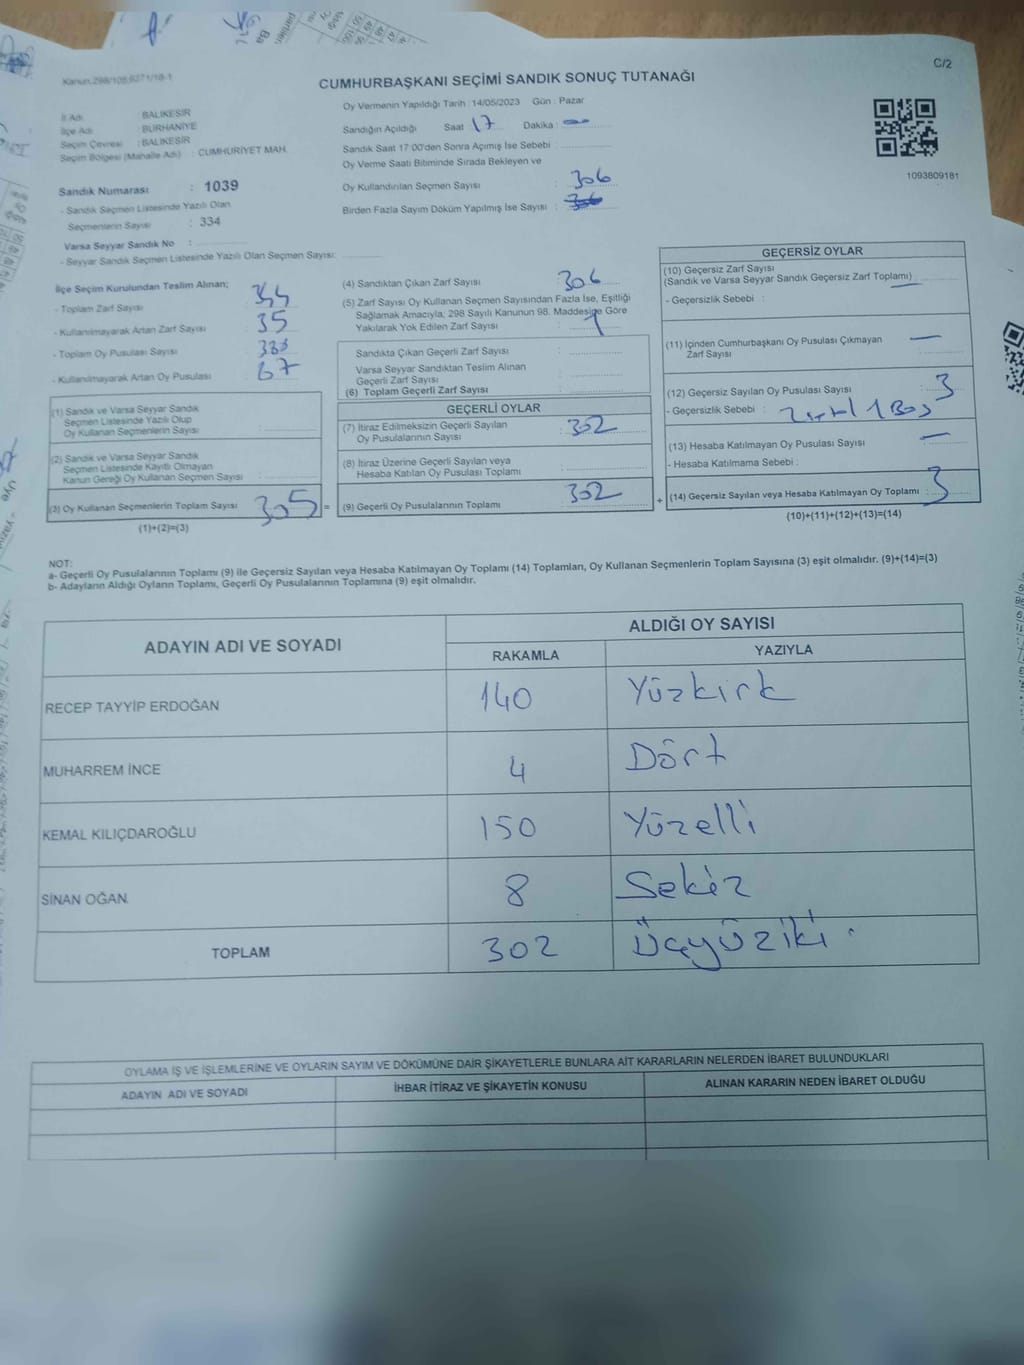 C/2
Kanun.298/105,6271/18-1
CUMHURBAŞKANI SEÇİMİ SANDIK SONUÇ TUTANAĞI
İl Adı : BALIKESİR
İlçe Adı : BURHANİYE
Seçim Çevresi : BALIKESİR
Seçim Bölgesi (Mahalle Adı) : CUMHURİYET MAH.
Sandık Numarası : 1039
- Sandık Seçmen Listesinde Yazılı Olan
Seçmenlerin Sayısı : 334
Varsa Seyyar Sandık No :
- Seyyar Sandık Seçmen Listesinde Yazılı Olan Seçmen Sayısı:
Oy Vermenin Yapıldığı Tarih : 14/05/2023 Gün : Pazar
Sandığın Açıldığı Saat 17 Dakika :
Sandık Saat 17:00'den Sonra Açımış İse Sebebi :
Oy Verme Saati Bitiminde Sırada Bekleyen ve
Oy Kullandırılan Seçmen Sayısı : 306
Birden Fazla Sayım Döküm Yapılmış İse Sayısı :
1093809181
İlçe Seçim Kurulundan Teslim Alınan;
- Toplam Zarf Sayısı :
- Kullanılmayarak Artan Zarf Sayısı : 35
- Toplam Oy Pusulası Sayısı :
- Kullanılmayarak Artan Oy Pusulası : 67
(1) Sandık ve Varsa Seyyar Sandık
Seçmen Listesinde Yazılı Olup
Oy Kullanan Seçmenlerin Sayısı :
(2) Sandık ve Varsa Seyyar Sandık
Seçmen Listesinde Kayıtlı Olmayan
Kanun Gereği Oy Kullanan Seçmen Sayısı :
(3) Oy Kullanan Seçmenlerin Toplam Sayısı 305 =
(1)+(2)=(3)
(4) Sandıktan Çıkan Zarf Sayısı : 306
(5) Zarf Sayısı Oy Kullanan Seçmen Sayısından Fazla İse, Eşitliği
Sağlamak Amacıyla; 298 Sayılı Kanunun 98. Maddesine Göre
Yakılarak Yok Edilen Zarf Sayısı : 1
Sandıkta Çıkan Geçerli Zarf Sayısı :
Varsa Seyyar Sandıktan Teslim Alınan
Geçerli Zarf Sayısı :
(6) Toplam Geçerli Zarf Sayısı :
GEÇERLİ OYLAR
(7) İtiraz Edilmeksizin Geçerli Sayılan
Oy Pusulalarının Sayısı : 302
(8) İtiraz Üzerine Geçerli Sayılan veya
Hesaba Katılan Oy Pusulası Toplamı :
(9) Geçerli Oy Pusulalarının Toplamı : 302 +
GEÇERSİZ OYLAR
(10) Geçersiz Zarf Sayısı
(Sandık ve Varsa Seyyar Sandık Geçersiz Zarf Toplamı) :
- Geçersizlik Sebebi :
(11) İçinden Cumhurbaşkanı Oy Pusulası Çıkmayan
Zarf Sayısı : —
(12) Geçersiz Sayılan Oy Pusulası Sayısı : 3
- Geçersizlik Sebebi : 1 Boş
(13) Hesaba Katılmayan Oy Pusulası Sayısı : —
- Hesaba Katılmama Sebebi :
(14) Geçersiz Sayılan veya Hesaba Katılmayan Oy Toplamı : 3
(10)+(11)+(12)+(13)=(14)
NOT:
a- Geçerli Oy Pusulalarının Toplamı (9) ile Geçersiz Sayılan veya Hesaba Katılmayan Oy Toplamı (14) Toplamları, Oy Kullanan Seçmenlerin Toplam Sayısına (3) eşit olmalıdır. (9)+(14)=(3)
b- Adayların Aldığı Oyların Toplamı, Geçerli Oy Pusulalarının Toplamına (9) eşit olmalıdır.
ADAYIN ADI VE SOYADI ALDIĞI OY SAYISI
RAKAMLA YAZIYLA
RECEP TAYYİP ERDOĞAN 140 Yüzkırk
MUHARREM İNCE 4 Dört
KEMAL KILIÇDAROĞLU 150 Yüzelli
SİNAN OĞAN 8 Sekiz
TOPLAM 302 Üçyüziki
OYLAMA İŞ VE İŞLEMLERİNE VE OYLARIN SAYIM VE DÖKÜMÜNE DAİR ŞİKAYETLERLE BUNLARA AİT KARARLARIN NELERDEN İBARET BULUNDUKLARI
ADAYIN ADI VE SOYADI İHBAR İTİRAZ VE ŞİKAYETİN KONUSU ALINAN KARARIN NEDEN İBARET OLDUĞU